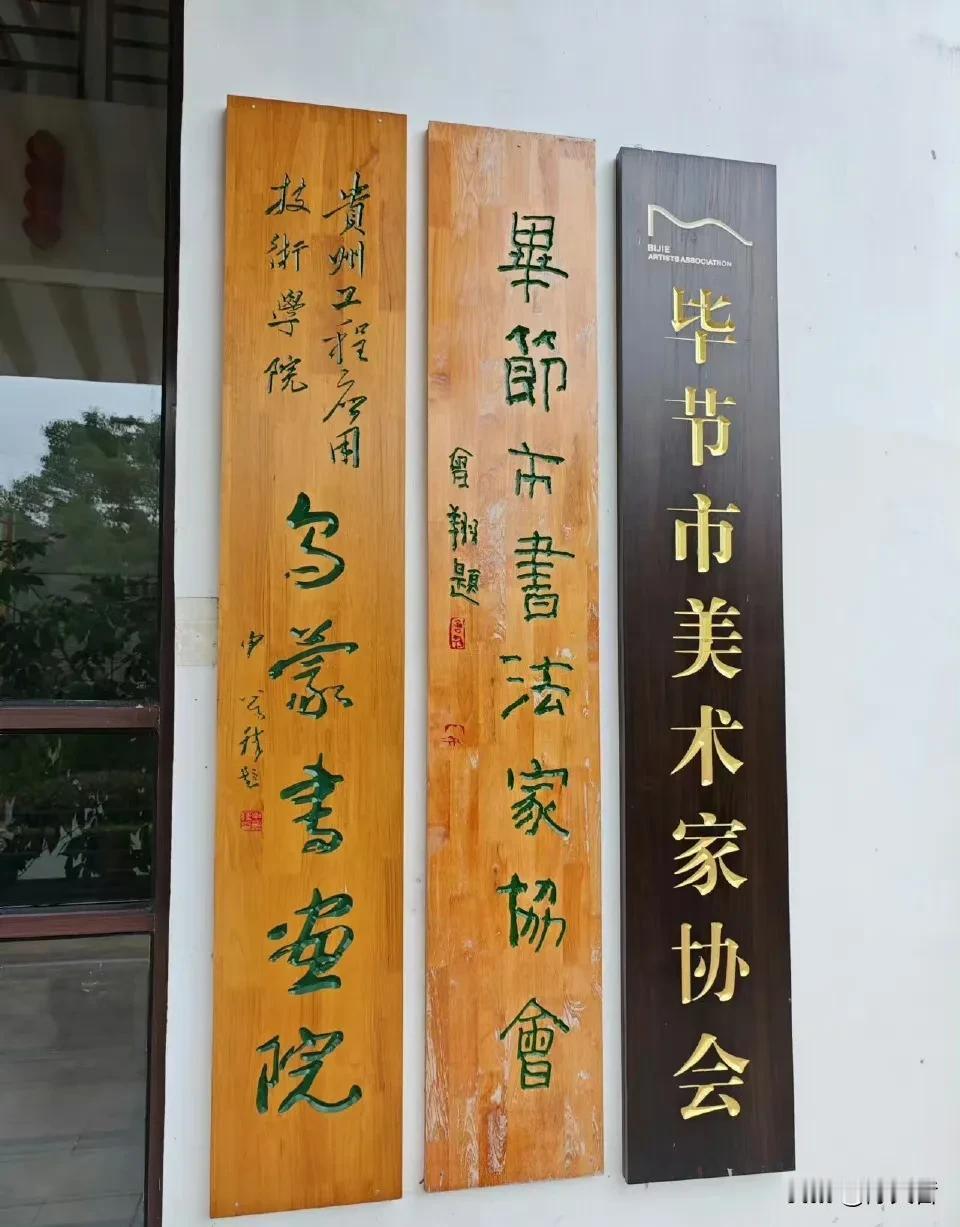 貴州工程应用
技術學院
乌蒙書画院
畢節市書法家協會
曾翔題
BIJIE
ARTISTS ASSOCIATION
毕节市美术家协会